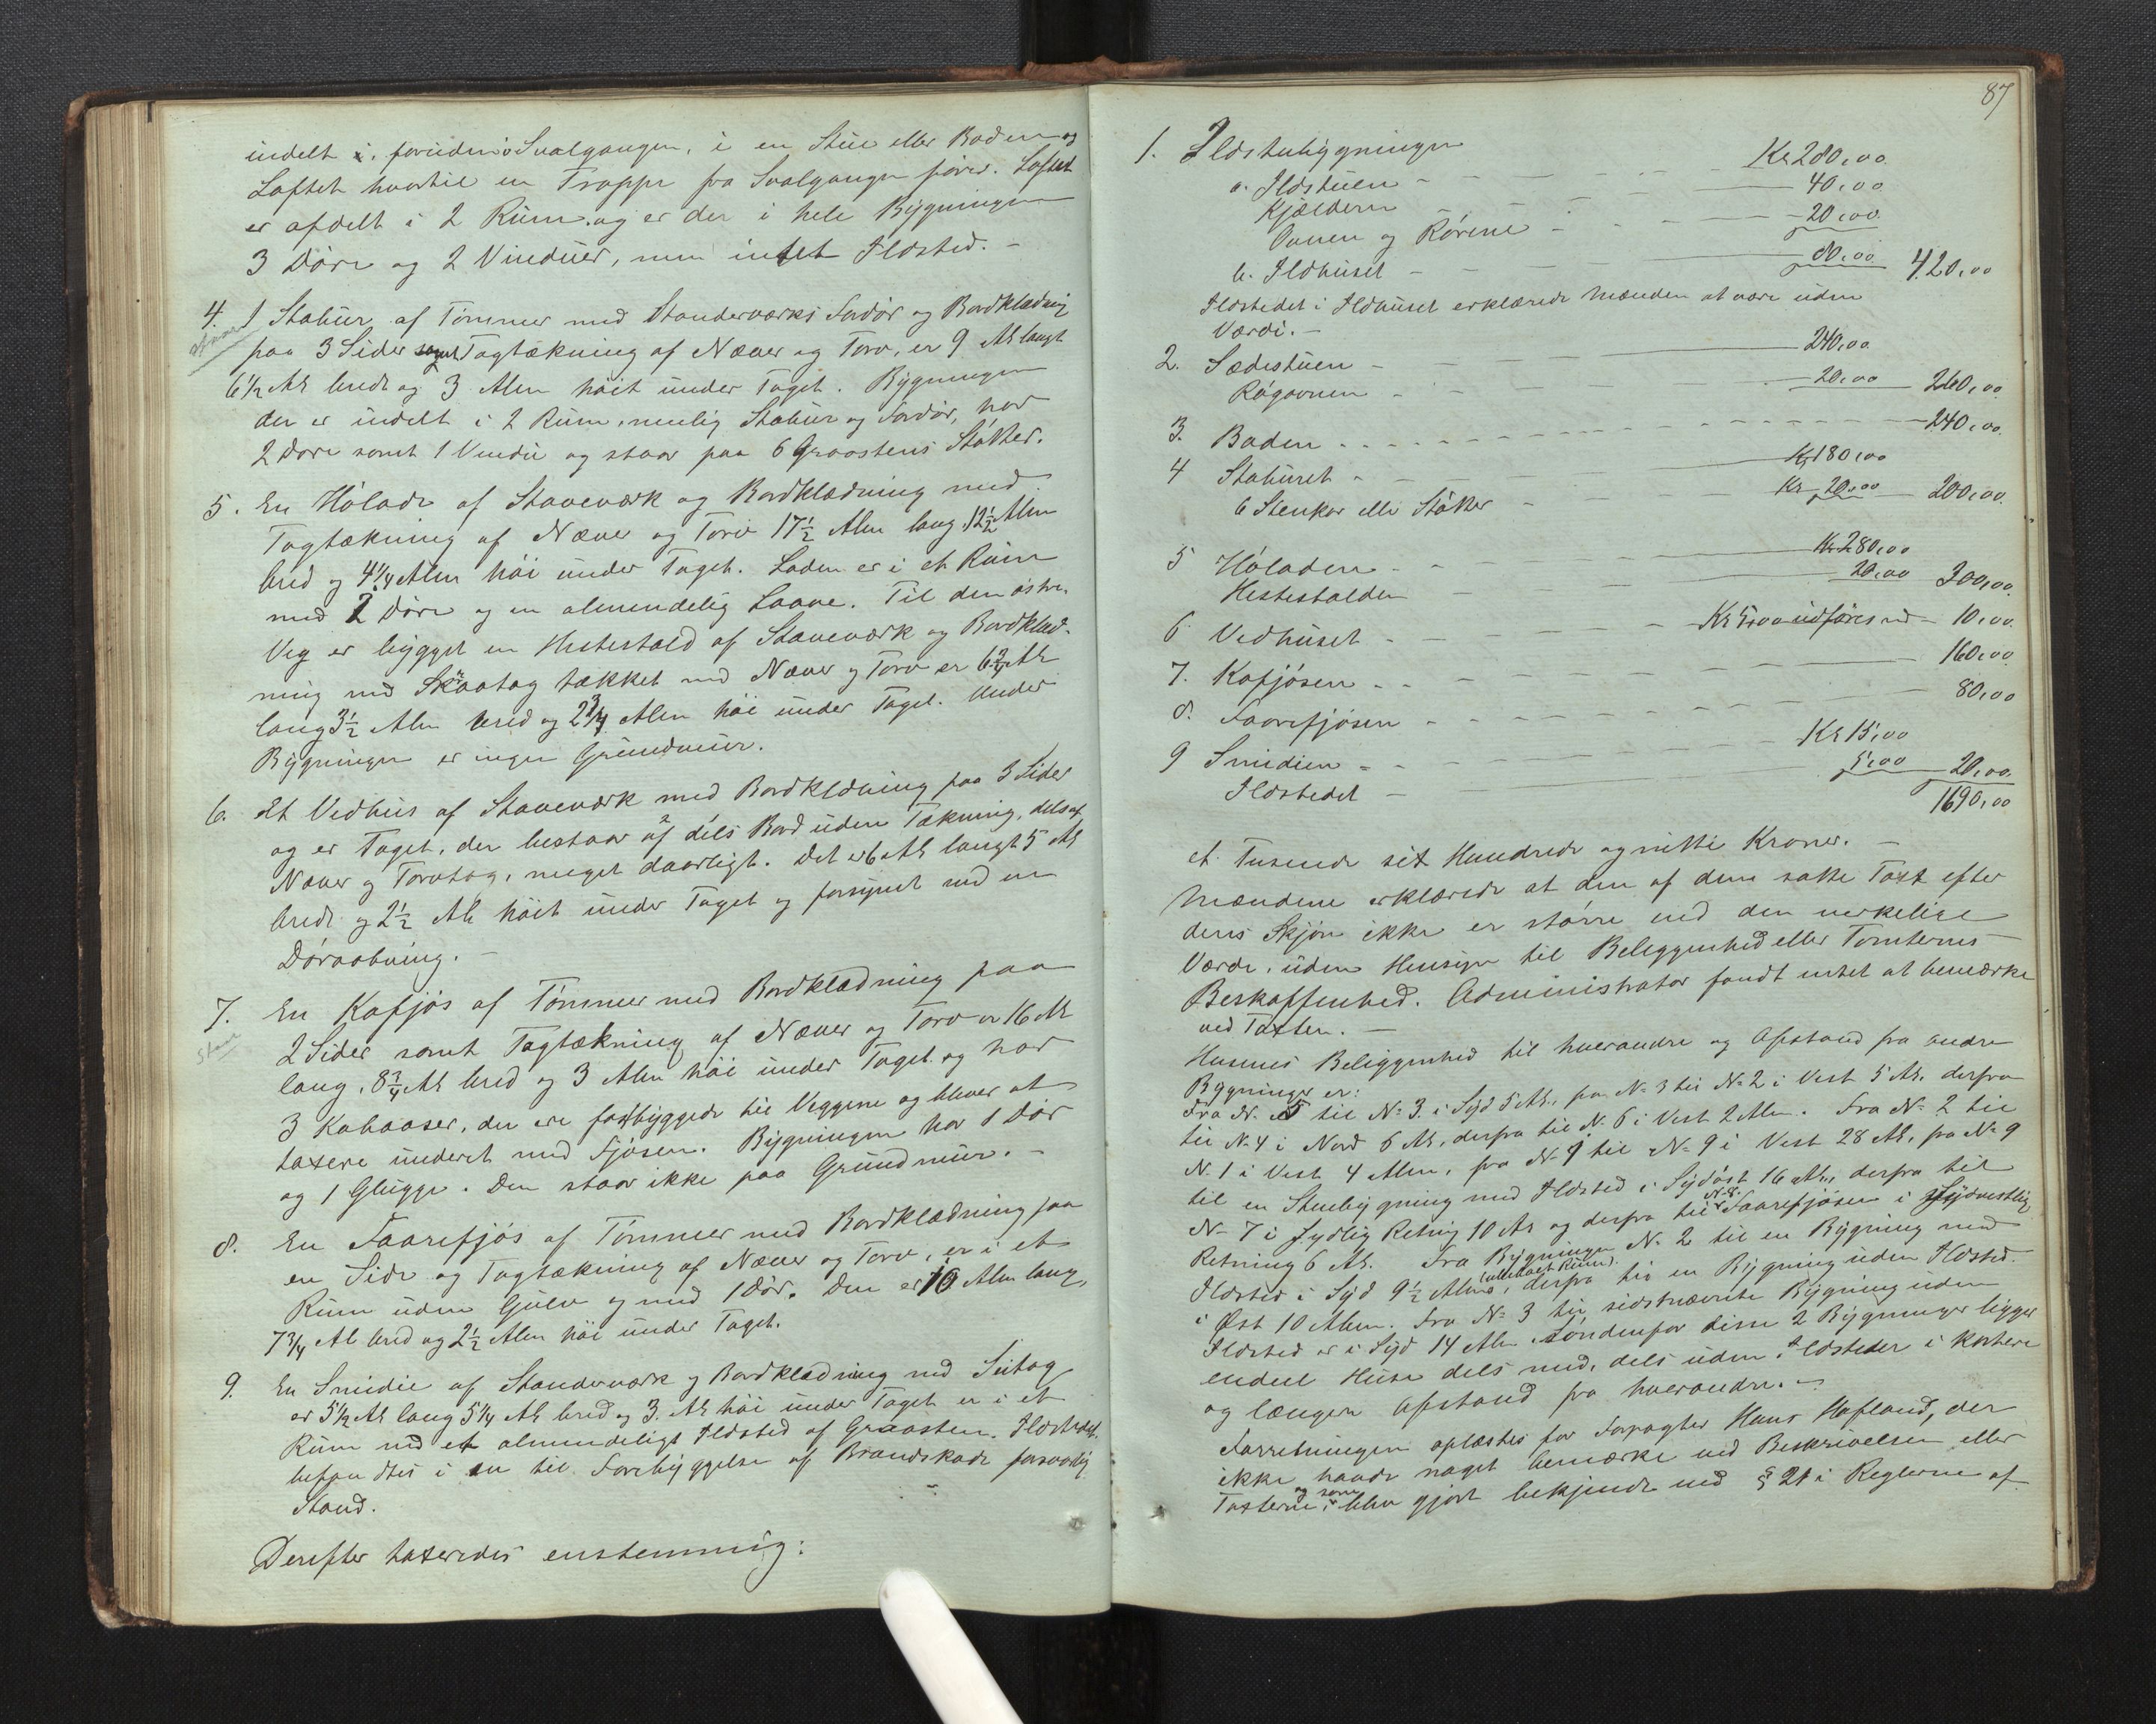 indelt i, foruden Svalgangen, i en Stue eller Boden og
Loftet hvortil en Trappe fra Svalgangen fører. Loftet
er afdelt i 2 Rum og er der i hele Bygningen
3 Døre og 2 Vinduer, men intet Ildsted. –
4. 1 Stabur af Tømmer med Standerværks Fordør og Bordklædning
paa 3 Sider samt Tagtækning af Næver og Torv, er 9 Al. langt
6½ Al. bredt og 3 Alen høit under Taget. Bygningen
der er indelt i 2 Rum, nemlig Stabur og Fordør, har
2 Døre samt 1 Vindu og staar paa 6 Graastens Støtter.
5. En Hølade af Staveværk og Bordklædning med
Tagtækning af Næver og Torv 17½ Alen lang 12½ Alen
bred og 4¼ Alen høi under Taget. Laden er i et Rum
med 2 Døre og en almindelig Laave. Til den østre
Væg er bygget en Hestestald af Staveværk og Bordklæd-
ning med Skraatag tækket med Næver og Torv er 6¾ Al.
lang 3½ Alen bred og 2¾ Alen høi under Taget. Under
Bygningen er ingen Grundmur.
6. Et Vedhus af Staveværk med Bordklædning paa 3 Sider
og er Taget, der bestaar af dels Bord uden Tækning, dels af
Næver og Torvtag, meget daarligt. Det er 6 Al. langt 5 Al.
bredt og 2½ Al. høit under Taget og forsynet med en
Døraabning. –
7. En Kofjøs af Tømmer med Bordklædning paa
2 Sider samt Tagtækning af Næver og Torv er 16 Al.
lang, 8¾ Al. bred og 3 Alen høi under Taget og har
3 Kobaaser, der ere fastbyggede til Væggene og bliver at
taxere underet med Fjøsen. Bygningen har 1 Dør
og 1 Glugge. Den staar ikke paa Grundmur. –
8. En Faarefjøs af Tømmer med Bordklædning paa
en Side og Tagtækning af Næver og Torv, er i et
Rum uden Gulv og med 1 Dør. Den er 10 Alen lang,
7¾ Al. bred og 2½ Alen høi under Taget.
9. En Smidie af Standerværk og Bordklædning med Sutag
er 5½ Al. lang 5¼ Al. bred og 3 Al. høi under Taget er i et
Rum med et almindeligt Ildsted af Graasten. Ildstedet
befandtes i en til Forebyggelse af Brandskade forsvarlig
Stand.
Derefter taxeredes enstemmig:
87
1. Ildstubygningen
a. Ildstuen – Kr 280,00
Kjælderen – 40,00
Ovnen og Rørene – 20,00
b. Ildhuset – 80,00 420,00
Ildstedet i Ildhuset erklærede Mændene at være uden
Værdi. –
2. Sædestuen – 240,00
Røgovnen – 20,00 – 260,00
3. Boden – 240,00
4 Staburet – Kr 180,00
6 Stenkar eller Støtter – Kr 20,00 – 200,00
5 Høladen – Kr 280,00
Hestestalden – 20,00 300,00
6 Vedhuset – Kr 5,00 udføres med – 10,00
7. Kofjøsen – 160,00
8. Faarefjøsen – 80,00
9 Smidien – Kr 15,00
Ildstedet – 5,00 – 20,00
1690,00
et Tusende sex Hundrede og nitti Kroner. –
Mændene erklærede at den af dem satte Taxt efter
deres Skjøn ikke er større end den verkelige
Værdi, uden Hensyn til Beliggenhed eller Tomternes
Beskaffenhed. Administrator fandt intet at bemærke
ved Taxten. –
Husenes Beliggenhed til hverandre og Afstand fra andre
Bygninger er:
Fra N. 5 til N. 3 i Syd 5 Al., fra N. 3 til N. 2 i Vest 5 Al. derfra
til N. 4 i Nord 6 Al., derfra til N. 6 i Vest 2 Alen. Fra N. 2 til
N. 1 i Vest 4 Alen, fra N. 1 til N. 9 i Vest 28 Al., fra N. 9
til en Stuebygning med Ildsted i Sydøst 16 Al., derfra til
N. 7 i sydlig Retning 10 Al. og derfra til N. 8. Faarefjøsen i sydvestlig
Retning 6 Al. Fra Bygningen N. 2 til en Bygning med
Ildsted i Syd 9½ Alen, derfra til en Bygning uden Ildsted
i Øst 10 Alen. Fra N. 3 til sidstnævnte Bygning uden
Ildsted er i Syd 14 Alen. Søndenfor disse 2 Bygninger ligger
endeel Huse dels med, dels uden Ildsteder i kortere
og længere Afstand fra hverandre. –
Forretningen oplæstes for Forpagter Hans Hafland, der
ikke havde noget bemærke ved Beskrivelsen eller
Taxterne og som blev gjort bekjendt med § 21 i Reglerne af